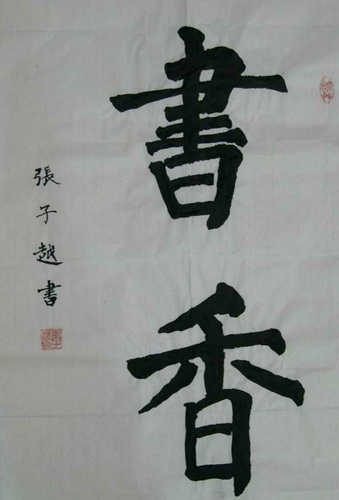 書香
張子越書